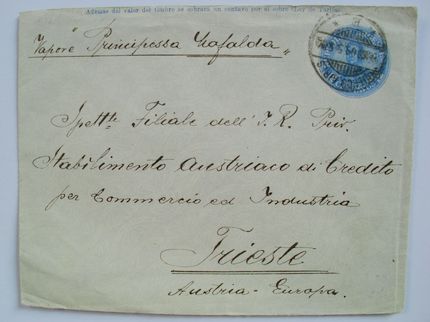 Además del valor del timbre se cobrará un centavo por el sobre (Ley de Tarifas
Vapore "Principessa Mafalda"
Spettle Filiale dell' I. R. Priv.
Stabilimento Austriaco di Credito
per Commercio ed Industria
Trieste
Austria - Europa.